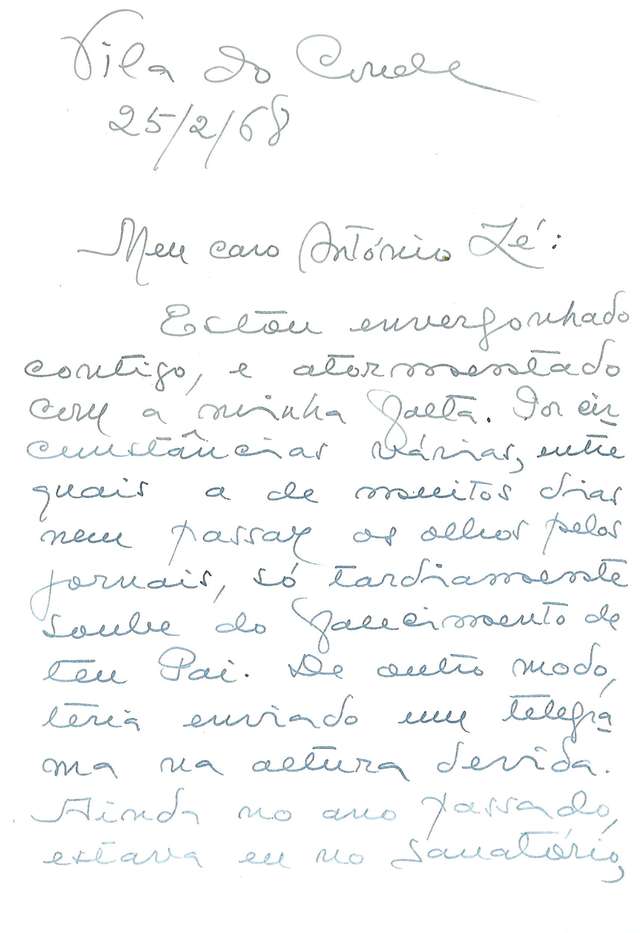 Vila do Conde
25/2/68
Meu caro António Zé:
Estou envergonhado
contigo, e atormentado
com a minha falta. Por cir
cunstâncias várias, entre
quais a de muitos dias
nem passar os olhos pelos
jornais, só tardiamente
soube do falecimento de
teu Pai. De outro modo,
teria enviado um telegra
ma na altura devida.
Ainda no ano passado,
estava eu no Sanatório,